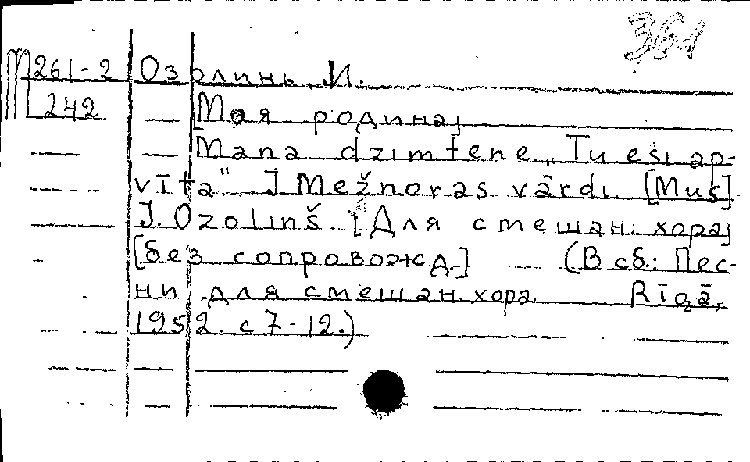 361
М261-2 Озолинь, И.
242 Моя родина]
Mana dzimtene „Tu esi ap-
vīta" J. Mežnoras vārdi. [Mus]
J. Ozoliņš. [Для смешан. хора]
[без сопровожд.] (В сб: Пес-
ни для смешан. хора Rīgā,
1952. с 7-12.)